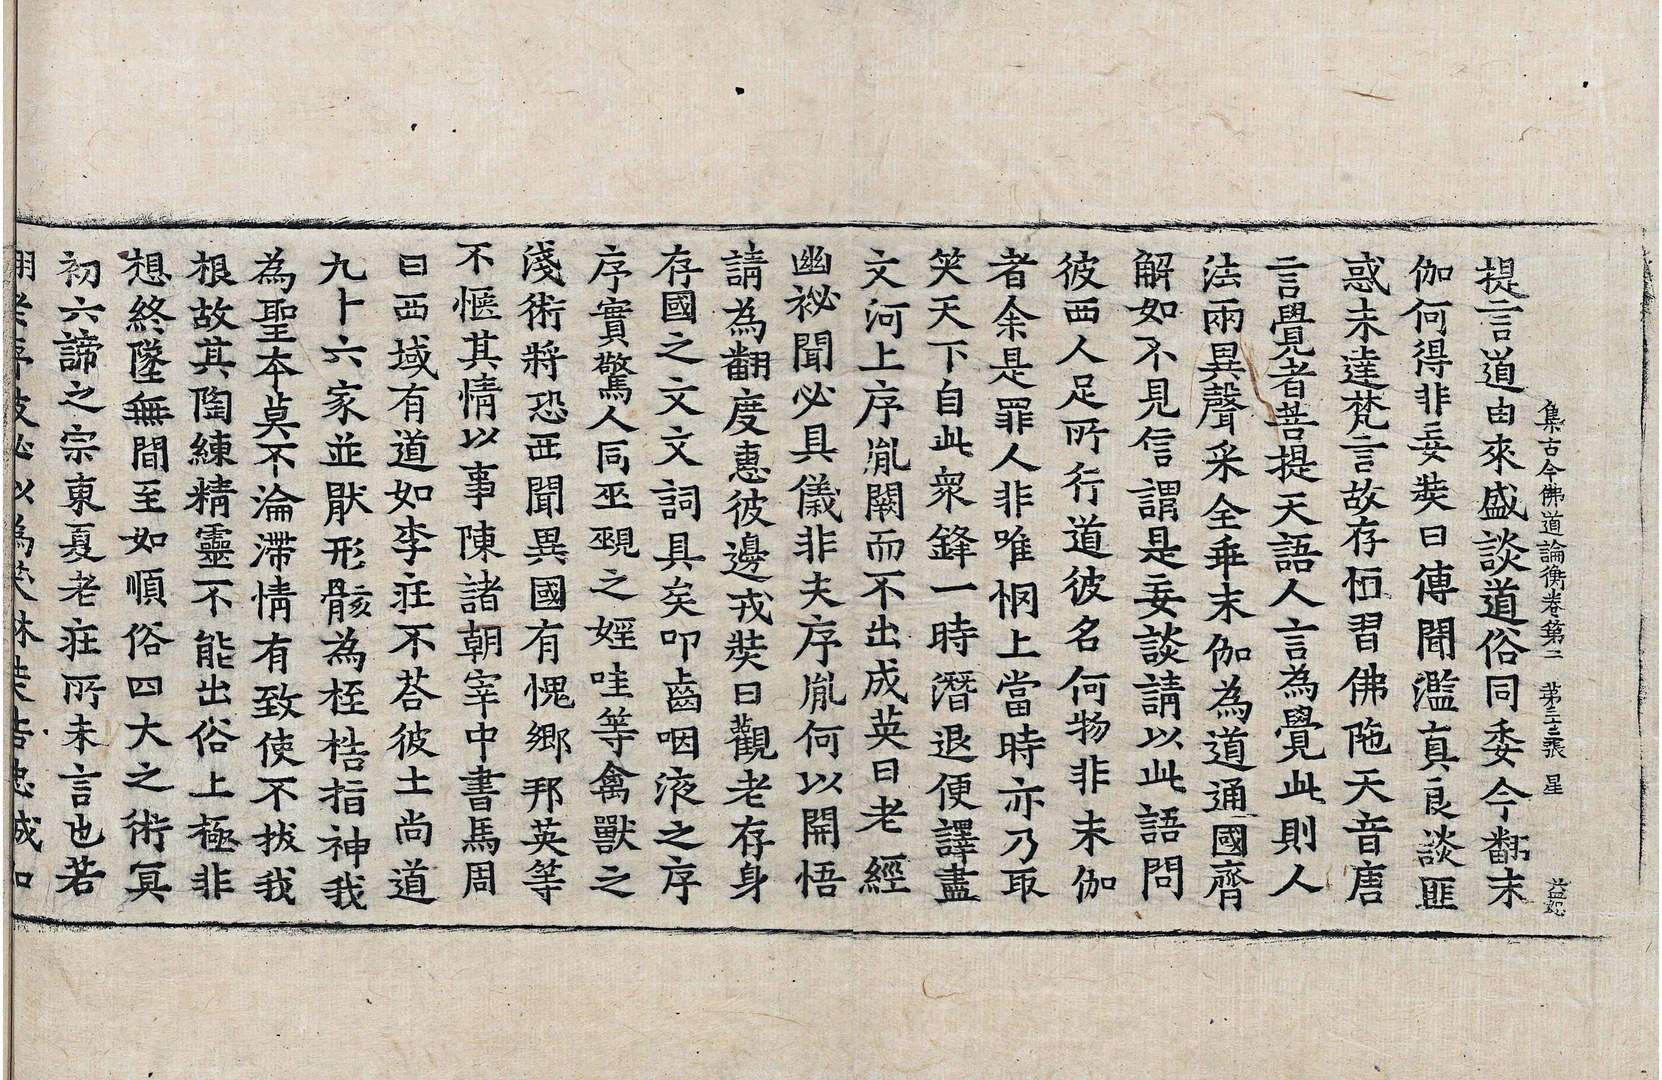 集古今佛道論衡卷第二 第三十三張 星
提言道由來盛談道俗同委今翻末
伽何得非妄奘曰傳聞濫真良談匪
惑未達梵言故存恒習佛陁天音唐
言覺者菩提天語人言為覺此則人
法兩異聲采全乖末伽為道通國齊
解如不見信謂是妄談請以此語問
彼西人足所行道彼名何物非末伽
者余是罪人非唯惘上當時亦乃取
笑天下自此衆鋒一時潛退便譯盡
文河上序胤闕而不出成英曰老經
幽祕聞必具儀非夫序胤何以開悟
請為翻度惠彼邊戎奘曰觀老存身
存國之文文詞具矣叩齒咽液之序
序實驚人同巫覡之婬哇等禽獸之
淺術將恐西聞異國有愧鄉邦英等
不愜其情以事陳諸朝宰中書馬周
曰西域有道如李莊不荅彼土尚道
九十六家並猒形骸為桎梏指神我
為聖本莫不淪滯情有致使不拔我
根故其陶練精靈不能出俗上極非
想終墜無間至如順俗四大之術冥
初六諦之宗東夏老莊所未言也若
翻老序彼必以為笑林奘告忠誠如